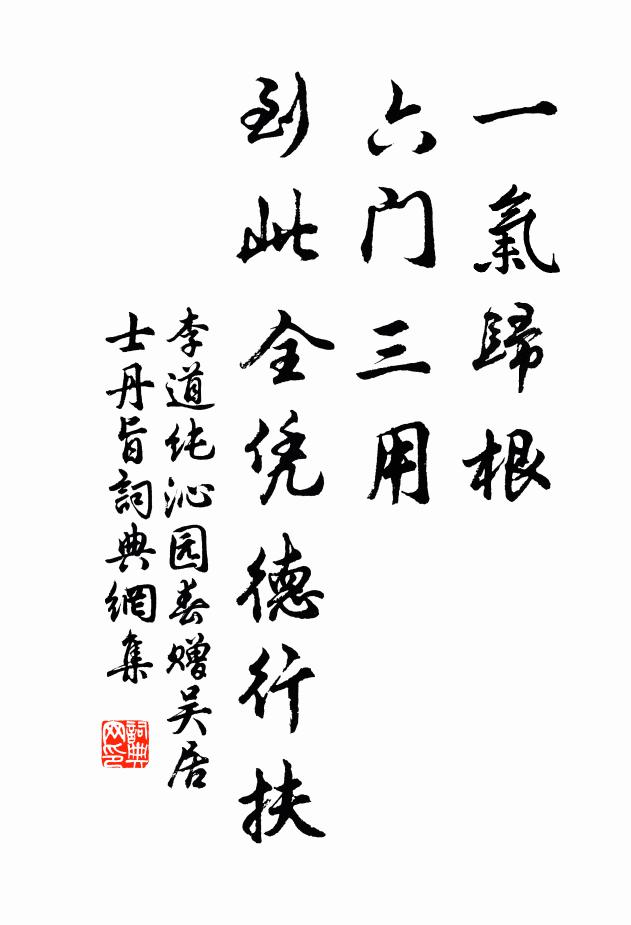 一氣歸根
六門三用
到此全凭德行扶
李道纯沁园春赠吴居
士丹旨詞典網集
詞典
网印